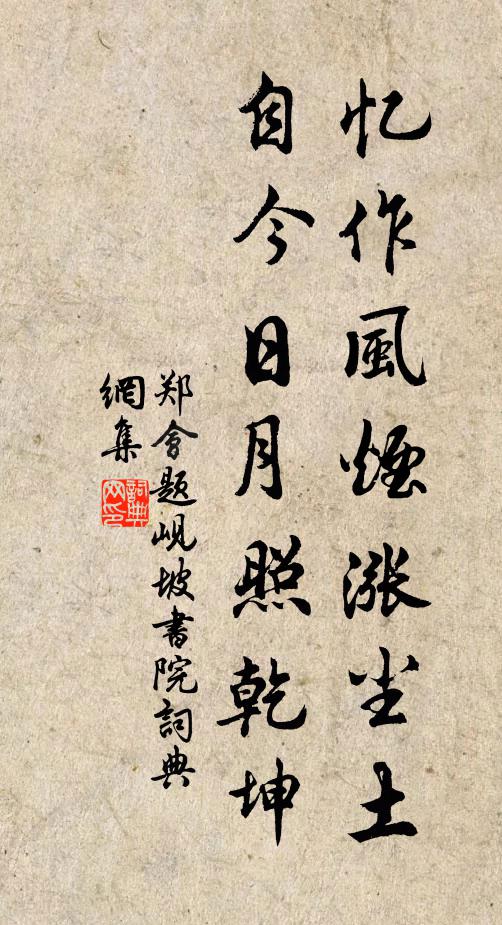 忆作風煙涨尘土
自今日月照乾坤
郑會题岘坡書院詞典
網集
詞典网印